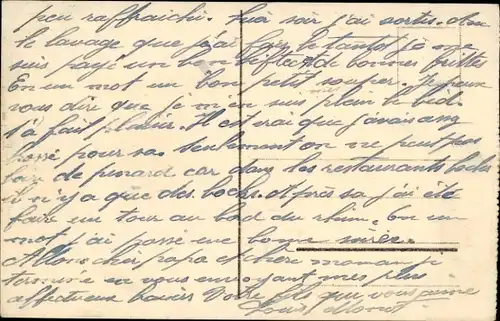 peu raffraichi. hier soir j'ai sortis. dans
le lavage que j'ai fait le tantot je me
suis payé un bon befteck de bonnes frittes
En un mot un bon petit souper. Je peux
vous dire que je m'en suis plein le bide.
s'a fait plaisir. Il est vrai que j'avais
pour sa. Seulement on ne peut pas
de pinard car dans les restaurants boches
il n'y a que des bocks. Après sa j'ai été
faire un tour au bord du rhin. En un
mot j'ai passé une bonne soirée.
Allons cher papa et chère maman je
termine en vous envoyant mes plus
affectueux baisers Votre fils qui vous aime
Louis